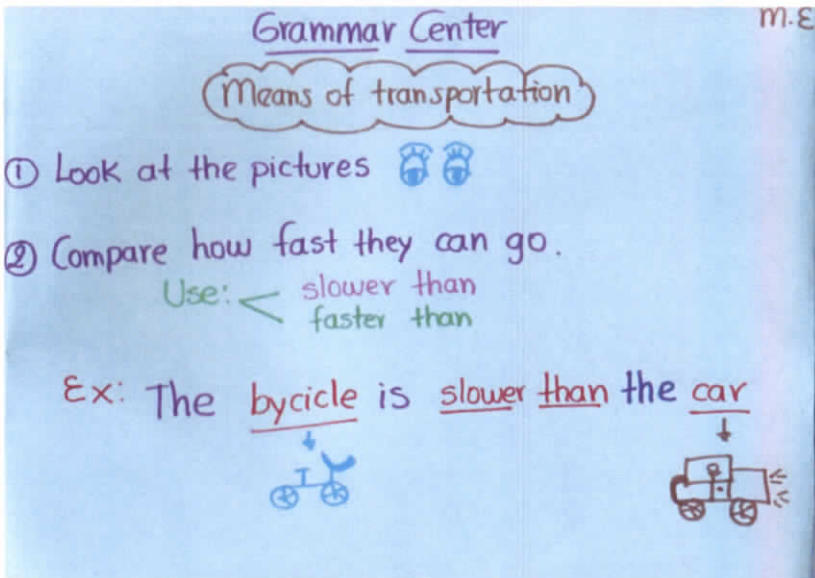 Grammar Center
M.E
Means of transportation
① Look at the pictures
② Compare how fast they can go.
Use: < slower than
faster than
Ex: The bycicle is slower than the car